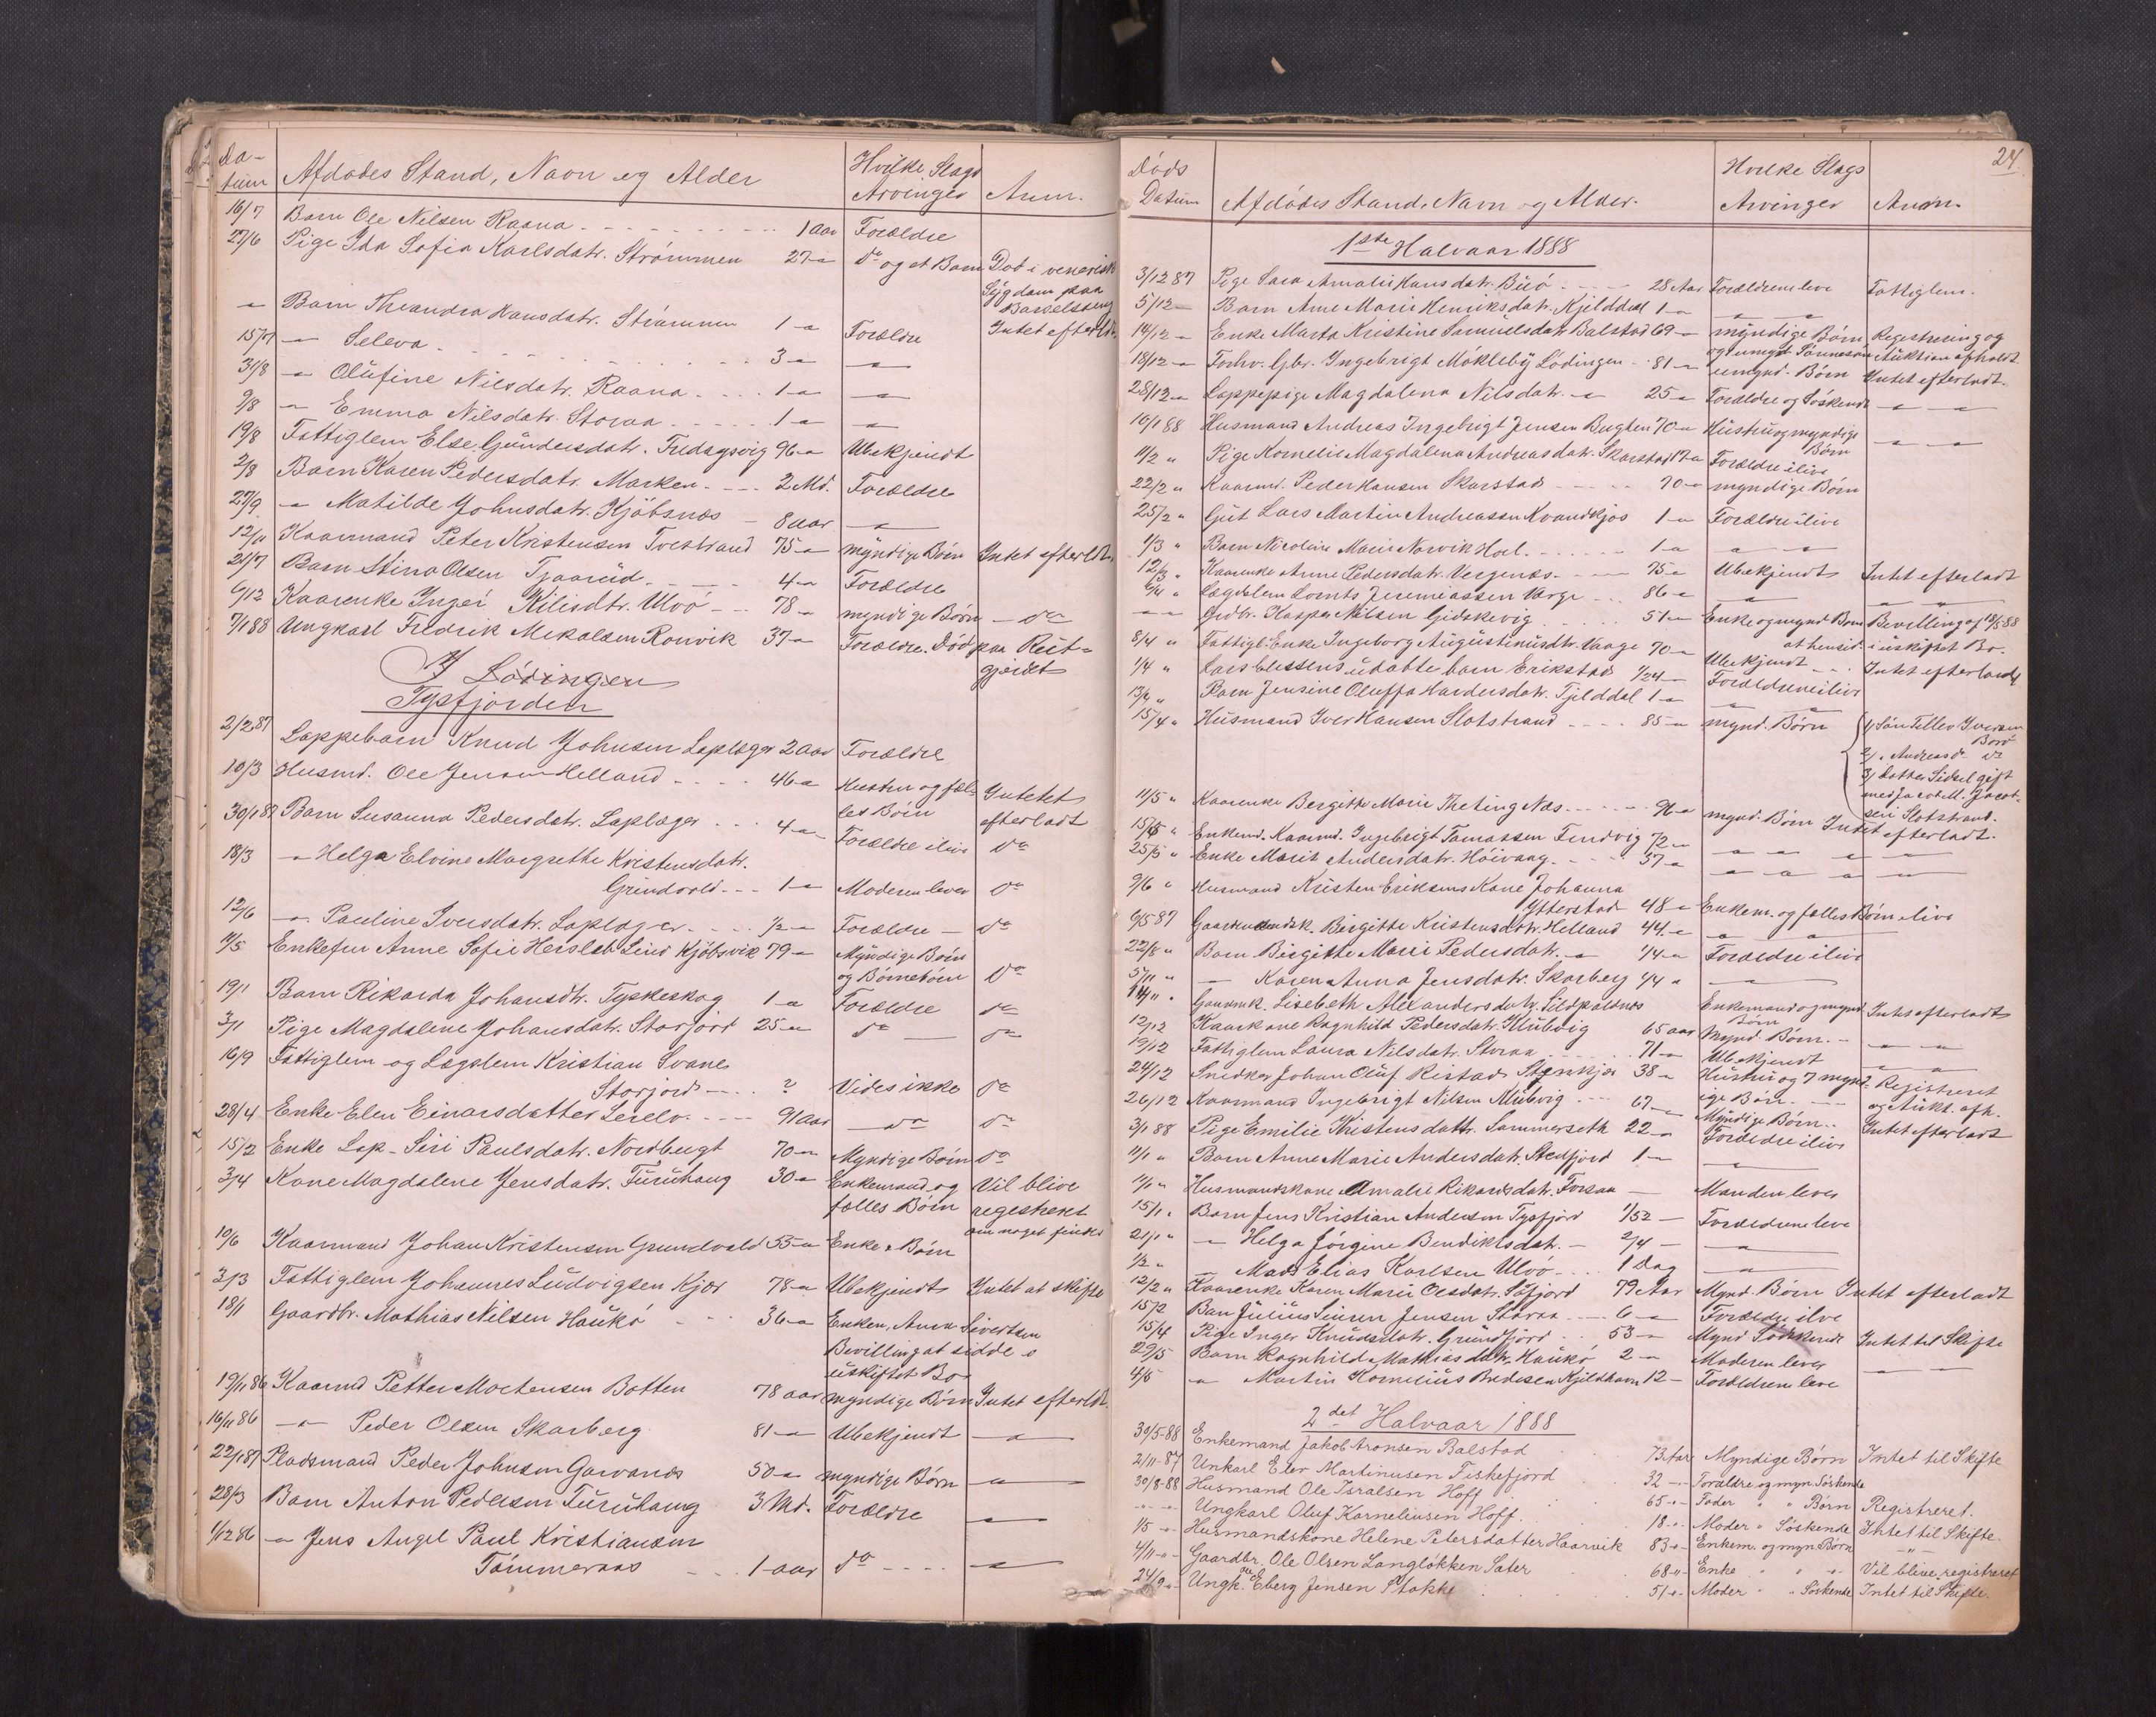 Da-
tum Afdødes Stand, Navn og Alder Hvilke Slags
Arvinger Anm.
16/7 Barn Ole Nilsen Raana 1 aar Forældre
27/6 Pige Ida Sofia Karlsdatr. Strømmen 27 " do og et Barn Død i venerisk
Sygdom paa
Barselseng
" Barn Theandra Hansdatr. Strømmen 1 " Forældre Intet efterldt.
15/7 " Seleva 3 " "
31/8 " Olufine Nilsdatr. Raana 1 " "
9/8 " Emma Nilsdatr. Storaa 1 " "
19/8 Fattiglem Else Gundersdatr. 96 " Ubekjendt
2/8 Barn Karen Pedersdatr. Marken 2 Md. Forældre
27/9 " Matilde Johnsdatr. Kjøbsnæs 8 aar "
12/11 Kaarmand Peter Kristensen Tverstrand 75 " myndige Børn Intet efterldt.
21/7 Barn Stina Olsen Tjaarud 4 " Forældre
6/12 Kaarenke Inger Kilisdtr. Ulvø 78 " myndige Børn " do
7/1 88 Ungkarl Fredrik Mikalsen Ronvik 37 " Forældre. Død paa Reit-
gjerdet
I Lødingen
Tysfjorden
2/2 87 Lappebarn Knud Johnsen Laplæger 2 aar Forældre
10/3 Husmd. Ole Jensen Helland 46 " Hustru og fæl- Intetet
les Børn efterladt
30/1 87 Barn Susanna Pedersdatr. Laplæger 4 " Forældre ilive do
18/3 " Helga Elvine Margrethe Kristensdatr.
Grundvold 1 " Moderen lever do
12/6 " Pauline Iversdatr. Laplæger 1/2 " Forældre do
11/5 Enkefru Anne Sofie Hersleb Lind Kjøbsvik 79 " Myndige Børn
og Børnebørn do
19/1 Barn Rikarda Johansdtr. Tyskeskog 1 " Forældre do
3/1 Pige Magdalene Johansdatr. Storjord 25 " do do
16/9 Fattiglem og Lægslem Kristian Svane
Storjord ? Vides ikke do
28/4 Enke Elen Einarsdatter 91 aar do do
15/2 Enke Lap- Siri Paulsdatr. Nordbugt 70 " Myndige Børn do
3/4 Kone Magdalene Jensdatr. Furuhaug 30 " Enkemand og Vil blive
fælles Børn registreret
om noget findes
10/6 Kaarmand Johan Kristensen Grundvold 55 " Enke & Børn
3/3 Fattiglem Johannes Ludvigsen Kjær 78 " Ubekjendt Intet at skifte
18/1 Gaardbr. Mathias Nilsen Haukø 36 " Enken, Anna Sivertsen
Bevilling at sidde i
uskiftet Bo
19/11 86 Kaarmd Petter Mortensen Botten 78 aar myndige Børn Intet efterldt.
16/11 86 " Peder Olsen Skarberg 81 " Ubekjendt "
22/1 87 Pladsmand Peder Johnsen Garvands 50 " myndige Børn "
28/3 Barn Anton Pedersen Furuhaug 3 Md. Forældre "
1/12 86 " Jens Angel Paul Kristiansen
Tømmeraas 1 aar do "
24
Døds
Datum Afdødes Stand, Navn og Alder. Hvilke Slags
Arvinger Anm.
1ste Halvaar 1888
3/12 87 Pige Sara Amalie Hansdatr. Buø 28 Aar Forældrene leve Fattiglem.
5/12 " Barn Anne Marie Henriksdatr. Kjilddal 1 " "
14/12 " Enke Marta Kristine Samuelsdatr Balstad 69 " myndige Børn Registrering og
og umynd. Sønnesøn Auktion afholdt
18/12 " Forhv. Gbr. Ingebrigt Møkleby Lødingen 81 " umynd. Børn Intet efterladt.
28/12 " Lappepige Magdalena Nilsdatr. " 25 " Forældre og Søskende " "
10/1 88 Husmand Andreas Ingebrigt Jensen Bugten 70 " Hustru og myndige
Børn " "
11/2 " Pige Kornelie Magdalena Andreasdatr. Skarstad 17 " Forældre ilive
22/2 " Kaarmd. Peder Hansen Skarstad 70 " myndige Børn
25/2 " Gut Lars Martin Andreassen Kvandkjos 1 " Forældre ilive
1/3 " Barn Nicoline Marie Narvik Hol. 1 " " "
12/3 " Kaarenke Anne Pedersdatr. Vergenæs 75 " Ubekjendt Intet efterladt
9/4 " Lægdslem Lornts Jeremeassen Værge 86 " " " "
" " Grdbr. Kaspar Nilsen Gjidskevig 51 " Enke og mynd Børn Bevilling af 12/5 88
at hensid. i uskiftet Bo.
8/4 " Fattigl. Enke Ingeborg Augustinusdtr. Vaage 70 " Ubekjendt Intet efterladt
1/4 " Lars Olessens udøbte barn Erikstad 1/24 " Forældrene ilive
13/4 " Barn Jensine Oluffa Hardersdatr. Tjelddal 1 " " "
15/4 " Husmand Iver Hansen Slotstrand 85 " mynd. Børn 1) Søn Tellev Iversen
Borø
2) " Andreas do do
3) Datter Sidsel gift
med Jacob M. Jacob-
sen Slotstrand.
11/5 " Kaarenke Bergitte Marie Theting Næs 91 " mynd. Børn Intet efterladt.
15/5 " Enkemd. Kaarmd. Ingebrigt Tomassen Findvig 72 " " " " "
25/5 " Enke Marit Andersdatr. Høivaag 57 " " " " "
9/6 " Husmand Kristen Eriksens Kone Johanna
Ytterstad 48 " Enkem. og fælles Børn ilive
6/5 87 Gaardmandsk. Birgitte Kristensdatr. Helland 44 " " "
22/8 " Barn Birgitte Marie Pedersdatr. " 1/4 " Forældre ilive
5/11 " " Karen Anna Jensdatr. Skarberg 1/4 " "
14/11 " Gaardmk. Lisebeth Alexandersdatr. Sildpoldnes Enkemand og mynd. Intet efterladt
Børn
12/12 Kaarkone Ragnhild Pedersdatr. Klubvig 65 aar Mynd. Børn. " "
19/12 Fattiglem Laura Nilsdatr. Storaa 71 " Ubekjendt " "
24/12 Snedker Johan Oluf Ristad Stenkjær 38 " Hustru og 7 mynd- Registreret
ige Børn og Aukt. afh.
26/12 Kaarmand Ingebrigt Nilsen Klubvig 67 " Myndige Børn Intet efterladt
3/1 88 Pige Emilie Kristensdattr. Sommerseth 22 " Forældre ilive
11/1 " Barn Anne Marie Andersdatr. Stedfjord 1 " "
11/1 " Husmandskone Amalie Rikardsdatr. Forsaa " Manden lever
15/1 " Barn Jens Kristian Andersen Tysfjord 1/52 " Forældrene leve
21/1 " " Helga Jørgine Bendiktsdatr. " 2/4 " "
1/2 " " Mads Elias Karlsen Ulvø 1 Dag "
12/2 " Kaarenke Karen Marie Olsdatr. Sæfjord 79 Aar Mynd. Børn Intet efterladt
15/2 Barn Julius Seinen Jensen Storaa 6 " Forældre ilive
15/4 Pige Inger Knudsdatr. Grundfjord 53 " Mynd Søskende Intet til Skifte
29/5 Barn Ragnhild Mathiasdatr. Haukø 2 " Moderen lever "
4/5 " Martin Kornelius Bredesen Kjildhavn 12 " Forældrene leve
2det Halvaar 1888
30/5-88 Enkemand Jakob Aronsen Balstad 73 Aar Myndige Børn Intet til Skifte
21/11-87 Unkarl Elev Martinusen Fiskefjord 32 " Forældre og myn Søskende
30/8-88 Husmand Ole Isralsen Hoff 65 " Fader " " Børn Registreret.
" " Ungkarl Oluf Korneliusen Hoff 18 " Moder " Søskende Intet til Skifte.
1/5 " Husmandskone Helene Petersdatter Haarvik 83 " Enkem. og myn Børn "
4/11 " Gaardbr. Ole Olsen Langløkken Sater 68 " Enke " " " Vil blive registreret
24/9 " Ungk. Eberg Jensen Stokke 51 " Moder " " Søskende Intet til Skifte.